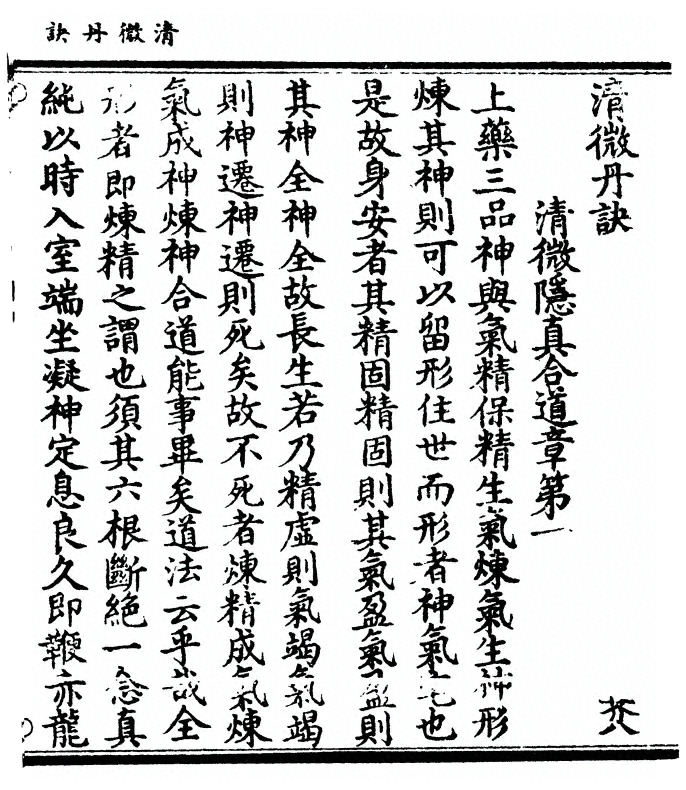 清微丹訣
清微丹訣
芥八
清微隱真合道章第一
上藥三品神與氣精保精生氣煉氣生神形
煉其神則可以留形住世而形者神氣宅也
是故身安者其精固精固則其氣盈氣盈則
其神全神全故長生若乃精虛則氣竭氣竭
則神遷神遷則死矣故不死者煉精成氣煉
氣成神煉神合道能事畢矣道法云乎哉全
者即煉精之謂也須其六根斷絕一念真
純以時入室端坐凝神定息良久即鞭亦龍